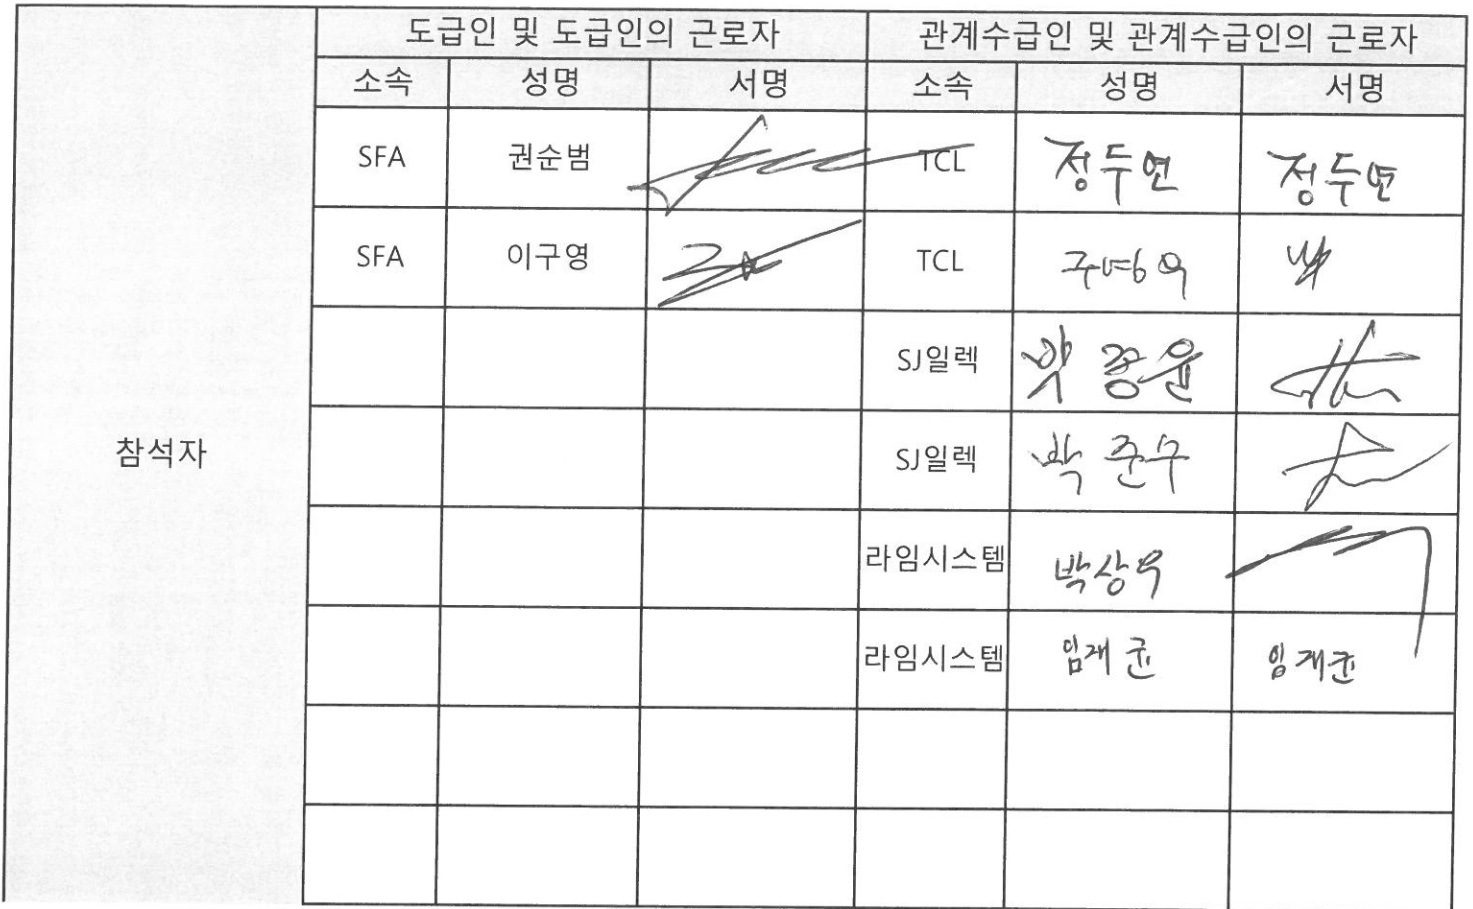 도급인 및 도급인의 근로자 관계수급인 및 관계수급인의 근로자
소속 성명 서명 소속 성명 서명
SFA 권순범 TCL 정두연 정두연
SFA 이구영 TCL
SJ일렉 박
참석자
SJ일렉 박준수
라임시스템 박상우
라임시스템 임재균 임재균